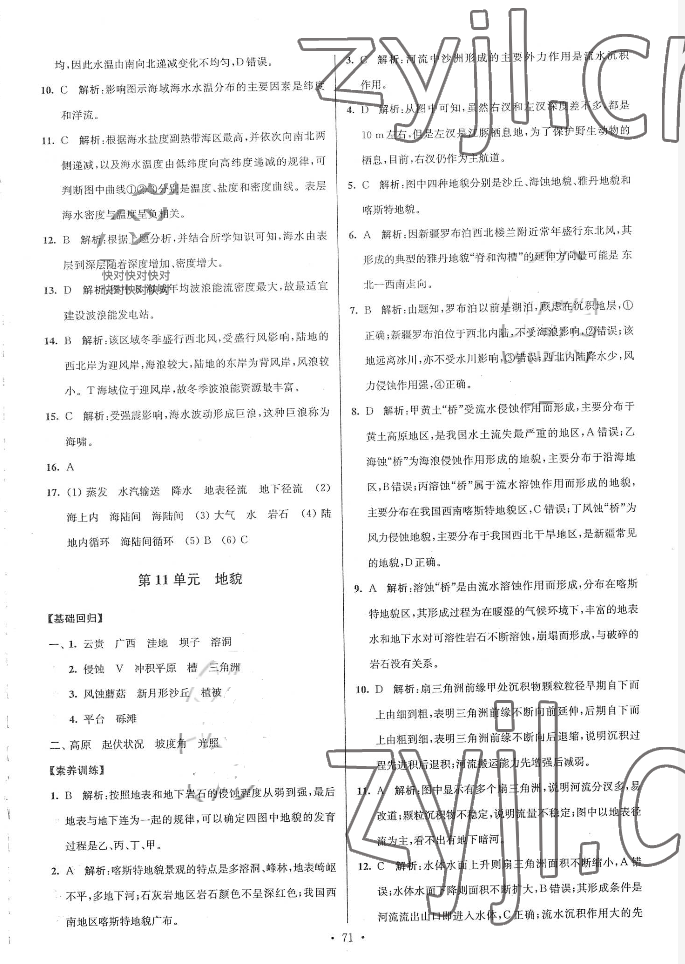 均,因此水温由南向北递减变化不均匀,D错误。
10. C 解析:影响图示海域海水水温分布的主要因素是纬度
和洋流。
11. C 解析:根据海水盐度副热带海区最高,并依次向南北两
侧递减,以及海水温度由低纬度向高纬度递减的规律,可
判断图中曲线①②③分别是温度、盐度和密度曲线。表层
海水密度与温度呈负相关。
12. B 解析:根据 题分析,并结合所学知识可知,海水由表
层到深层随着深度增加,密度增大。
快对快对快对
13. D 解析: 海域年均波浪能流密度最大,故最适宜
快对快对快对
建设波浪能发电站。
14. B 解析:该区域冬季盛行西北风,受盛行风影响,陆地的
西北岸为迎风岸,海浪较大,陆地的东岸为背风岸,风浪较
小。T海域位于迎风岸,故冬季波浪能资源最丰富。
15. C 解析:受强震影响,海水波动形成巨浪,这种巨浪称为
海啸。
16. A
17. (1) 蒸发 水汽输送 降水 地表径流 地下径流 (2)
海上内 海陆间 海陆间 (3) 大气 水 岩石 (4) 陆
地内循环 海陆间循环 (5) B (6) C
第11单元 地貌
【基础回归】
一、1. 云贵 广西 洼地 坝子 溶洞
2. 侵蚀 V 冲积平原 槽 三角洲
3. 风蚀蘑菇 新月形沙丘 植被
4. 平台 砾滩
二、高原 起伏状况 坡度角 光照
【素养训练】
1. B 解析:按照地表和地下岩石的侵蚀程度从弱到强,最后
地表与地下连为一起的规律,可以确定四图中地貌的发育
过程是乙、丙、丁、甲。
2. A 解析:喀斯特地貌景观的特点是多溶洞、峰林,地表崎岖
不平,多地下河;石灰岩地区岩石颜色不呈深红色;我国西
南地区喀斯特地貌广布。
3. C 解析:河流中沙洲形成的主要外力作用是流水沉积
作用。
4. D 解析:从图中可知,虽然右汊和左汊深度差不多,都是
10 m左右,但是左汊是江豚栖息地,为了保护野生动物的
栖息,目前,右汊仍作为主航道。
5. C 解析:图中四种地貌分别是沙丘、海蚀地貌、雅丹地貌和
喀斯特地貌。
6. A 解析:因新疆罗布泊西北楼兰附近常年盛行东北风,其
形成的典型的雅丹地貌“脊和沟槽”的延伸方向最可能是东
北一西南走向。
7. B 解析:由题知,罗布泊以前是湖泊,故应存在沉积地层,①
正确;新疆罗布泊位于西北内陆,不受海浪影响,②错误;该
地远离冰川,亦不受冰川影响,③错误;西北内陆降水少,风
力侵蚀作用强,④正确。
8. D 解析:甲黄土“桥”受流水侵蚀作用而形成,主要分布于
黄土高原地区,是我国水土流失最严重的地区,A错误;乙
海蚀“桥”为海浪侵蚀作用形成的地貌,主要分布于沿海地
区,B错误;丙溶蚀“桥”属于流水溶蚀作用而形成的地貌,
主要分布在我国西南喀斯特地貌区,C错误;丁风蚀“桥”为
风力侵蚀作用形成,主要分布于我国西北干旱地区,是新疆常见
的地貌,D正确。
9. A 解析:溶蚀“桥”是由流水溶蚀作用而形成,分布在喀斯
特地貌区,其形成过程为在暖湿的气候环境下,丰富的地表
水和地下水对可溶性岩石不断溶蚀,崩塌而形成,与破碎的
岩石没有关系。
10. D 解析:扇三角洲前缘甲处沉积物颗粒粒径早期自下而
上由细到粗,表明三角洲前缘不断向前延伸,后期自下而
上由粗到细,表明三角洲前缘不断向后退缩,说明沉积过
程先进积后退积;河流搬运能力先增强后减弱。
11. A 解析:图中显示有多个扇三角洲,说明河流分汊多,易
改道;颗粒沉积物不稳定,说明流量不稳定;图中以地表径
流为主,看不出有地下暗河。
12. C 解析:水体水面上升则扇三角洲面积不断缩小,A错
误;水体水面下降则面积不断扩大,B错误;其形成条件是
河流流出山口即进入水体,C正确;流水沉积作用大的先
· 71 ·
zyjl.cn
zyjl.cn